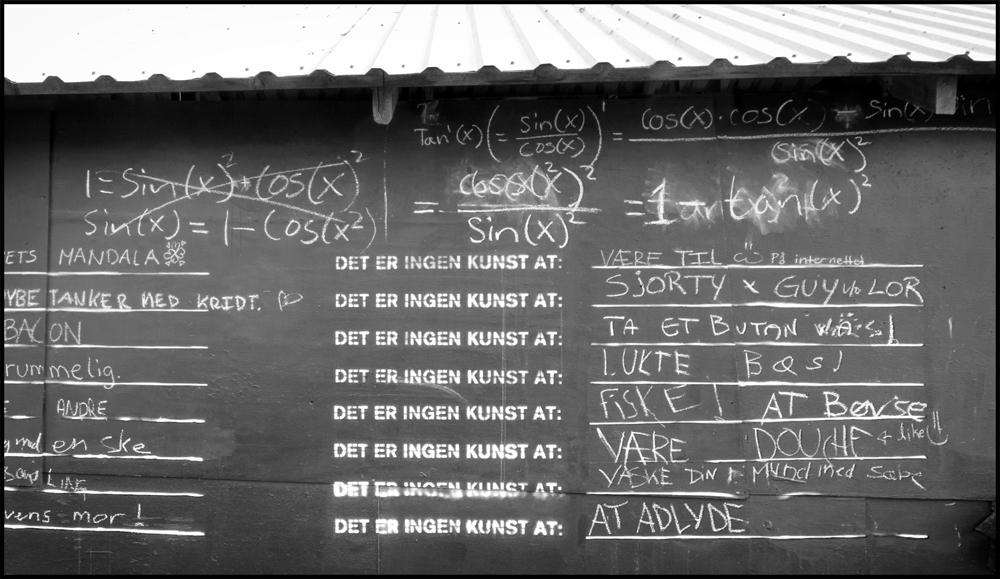 Tan'(x) (sin(x)/cos(x))' = cos(x)·cos(x) + sin(x) sin
sin(x)²
1=Sin(x)²+Cos(x)²
Sin(x)=1-Cos(x²)
=
Sin(x)²
=1
(x)²
ETS MANDALA
DET ER INGEN KUNST AT: VÆRE TIL På internettet
YBE TANKER MED KRIDT.
DET ER INGEN KUNST AT: SJORTY x GUY LOR
BACON
DET ER INGEN KUNST AT: TA ET BUTAN
rummelig.
DET ER INGEN KUNST AT: LUKTE
E ANDRE
DET ER INGEN KUNST AT: FISKE! AT Bøvse
med en ske
DET ER INGEN KUNST AT: VÆRE DOUCHE + like
DET ER INGEN KUNST AT: VASKE DIN MUND med Sæbe
vens mor!
DET ER INGEN KUNST AT: AT ADLYDE